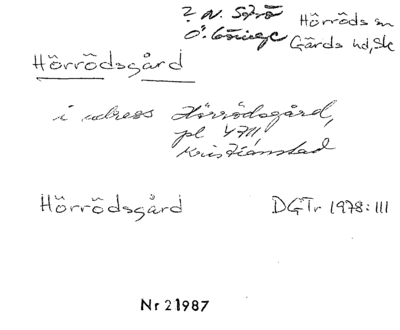 ? N. Sandby
Ö. Göinge
Hörröds sn
Gärds hd, Sk
Hörrödsgård
i adress Hörrödsgård,
pl 4711
Kristianstad
Hörrödsgård
DGTr 1978:111
Nr 21987